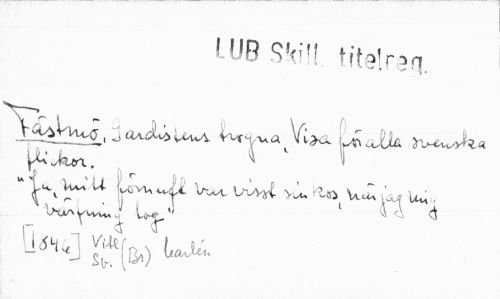 LUB Skill. titelreg.
Fästmö, Gardistens trogna, Visa för alla svenska
flickor.
"Ja, mitt förnuft var visst sin kos, när jag mig
värfning tog"
[1846] Vitt.
Sv. (Br)